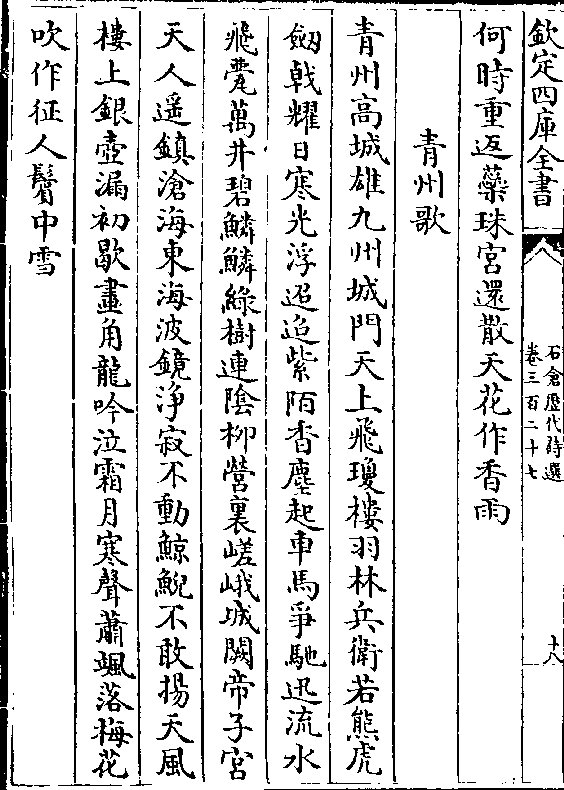 欽定四庫全書
石倉歷代詩選
卷三百二十七
十八
何時重返蘂珠宮還散天花作香雨
青州歌
青州高城雄九州城門天上飛瓊樓羽林兵衛若熊虎
劔戟耀日寒光浮迢迢紫陌杳塵起車馬爭馳迅流水
飛甍萬井碧鱗鱗綠樹連陰柳營裏嵯峨城闕帝子宮
天人遥鎮滄海東海波鏡淨寂不動鯨鯢不敢揚天風
樓上銀壺漏初歇畫角龍吟泣霜月寒聲蕭颯落梅花
吹作征人鬢中雪